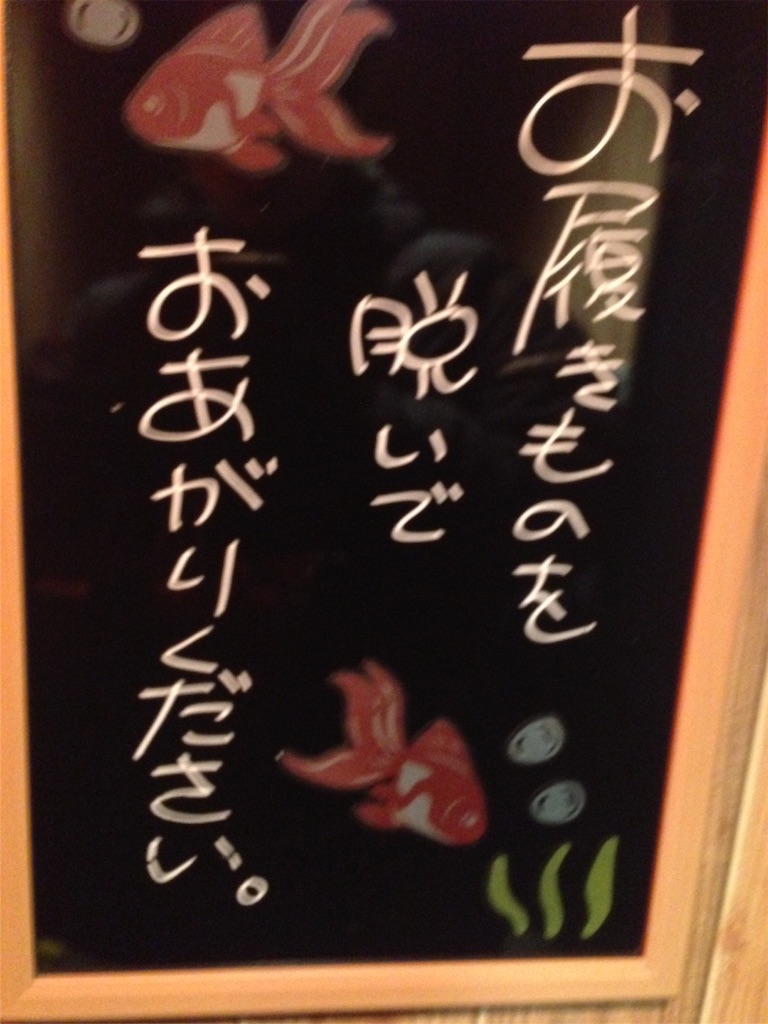 お履きものを
脱いで
おあがりください。